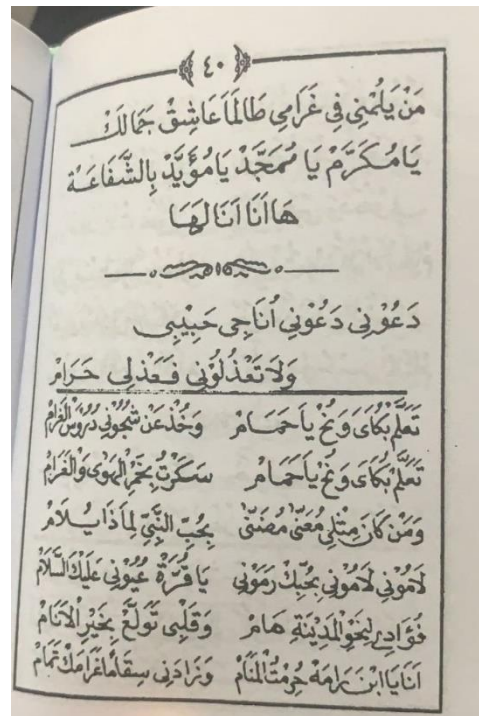 ٤٠
مَنْ يَلُمْنِي فِي غَرَامِي طَالَمَا عَاشِقْ جَمَالَكْ
يَا مُكَرَّمْ يَا مُمَجَّدْ يَا مُؤَيَّدْ بِالشَّفَاعَة
هَا اَنَا اَنَا لَهَا
دَعُوْنِي دَعُوْنِي اُنَاجِى حَبِيْبِى
وَلَا تَعْذُلُوْنِي فَعَذْلِى حَرَامْ
تَعَلَّمْ بُكَاىَ وَنُحْ يَا حَمَامْ وَخُذْ عَنْ شُجُوْنِي دُرُوْسَ الْغَرَامْ
تَعَلَّمْ بُكَاىَ وَنُحْ يَا حَمَامْ سَكَرْتُ بِخَمْرِ الْهَوٰى وَالْغَرَامْ
وَمَنْ كَانَ مِثْلِى مُعَنًّى مُضَنًّى بِحُبِّ النَّبِيِّ لِمَاذَا يُلَامْ
لَامُوْنِي لَامُوْنِي بِحُبِّكَ رَمَوْنِي يَا قُرَّةْ عُيُوْنِي عَلَيْكَ السَّلَامْ
فُؤَادِي لِنَحْوِ الْمَدِيْنَةِ هَامْ وَقَلْبِى تَوَلَّعْ بِخَيْرِ الْاَنَامْ
اَنَا يَا ابْنَ رَامَةْ حُرِمْتُ الْمَنَامْ وَزَادَنِي سِقَامًا غَرَامَكْ تَمَامْ